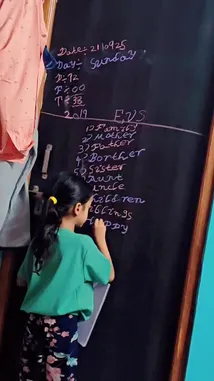 Date:- 21/09/25
Day:- Sunday
P:- 00
2019 E.V.S
1) Family
2) Mother
3) Father
4) Borther
5) Sister
6) Aunt
uncle
children
Happy